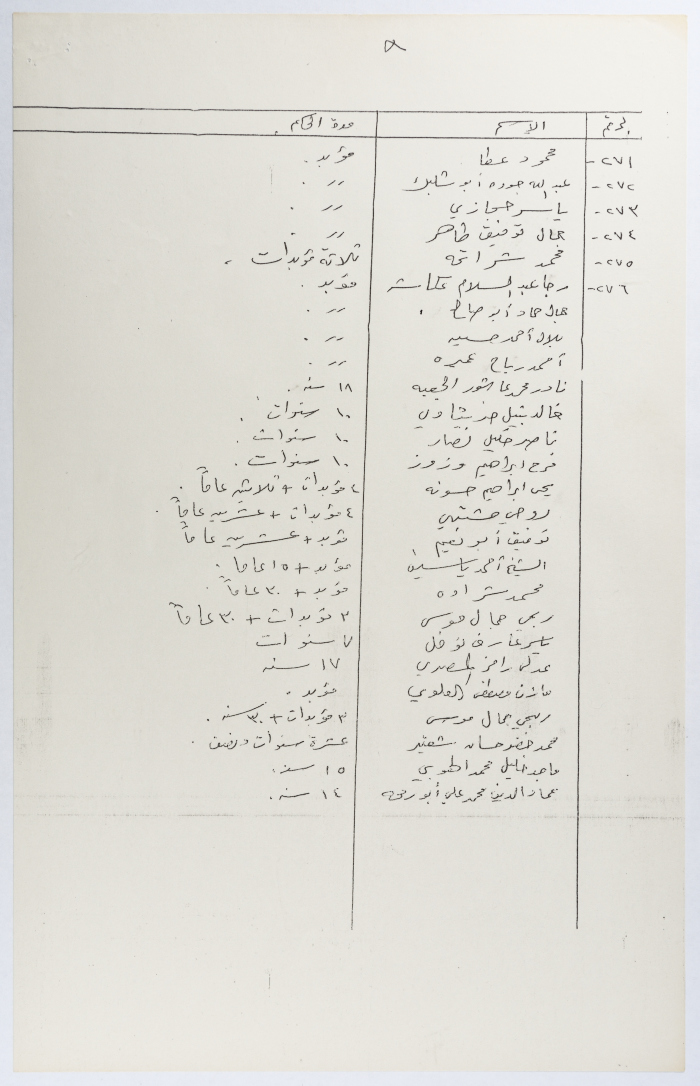 ٨
الرقم الإسم مدة الحكم
٢٧١- محمود عطا مؤبد.
٢٧٢- عبد الله جوده أبو شلبك " .
٢٧٣- ياسر حجازي " .
٢٧٤- جمال توفيق طاهر " .
٢٧٥- محمد شراتحه ثلاثة مؤبدات .
٢٧٦- رجا عبد السلام عكاشه مؤبد .
جمال حماد أبو صالح . " .
بلال أحمد حسين " .
أحمد رباح عميره " .
نادر محمد عاشور الجعبه ١٨ سنه .
خالد نبيل ١٠ سنوات .
ناصر خليل نصار ١٠ سنوات .
فرج ابراهيم وزوز ١٠ سنوات .
يحيى ابراهيم حسونه ٤ مؤبدات + ثلاثين عاماً .
روحي مشتهى ٤ مؤبدات + عشرين عاماً .
توفيق أبو نعيم مؤبد + عشرين عاماً
الشيخ أحمد ياسين مؤبد + ١٥ عاما .
محمد شراده مؤبد + ٣٠ عاماً .
ربحي جمال موسى ٣ مؤبدات + ٣٠ عاماً
ياسر عارف نوفل ٧ سنوات
عدلي رامز المصدي ١٧ سنه
مازن مصطفى العلوي مؤبد .
ربحي جمال موسى ٣ مؤبدات + ٣٠ سنه .
محمد خضر حسان شقير عشرة سنوات ونصف .
ماجد خليل محمد الجلوبي ١٥ سنه .
عماد الدين محمد علي أبو رحمه ١٤ سنه .